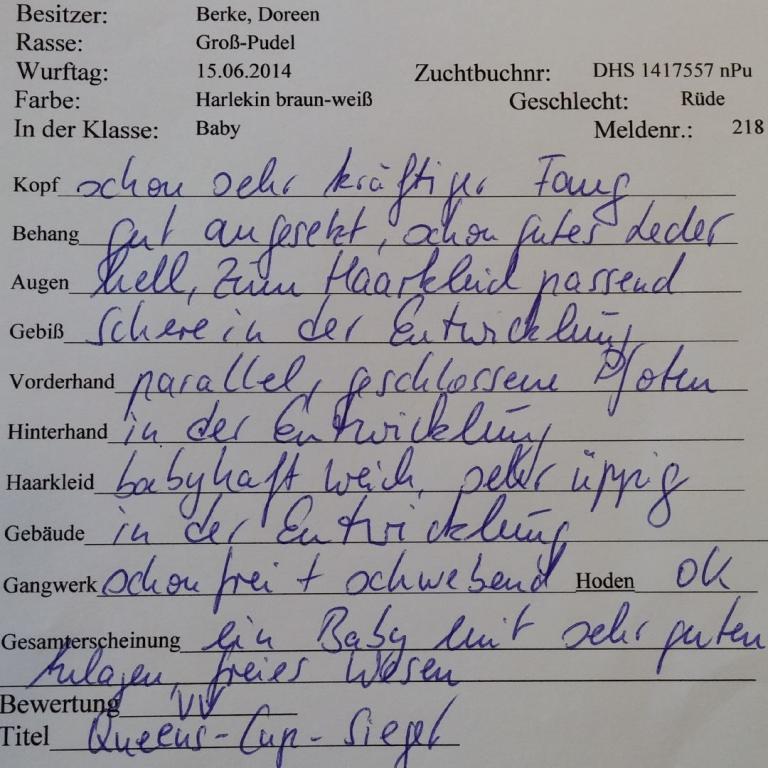 Besitzer: Berke, Doreen
Rasse: Groß-Pudel
Wurftag: 15.06.2014 Zuchtbuchnr: DHS 1417557 nPu
Farbe: Harlekin braun-weiß Geschlecht: Rüde
In der Klasse: Baby Meldenr.: 218
Kopf schon sehr kräftiger Fang
Behang gut angesetzt, schon gutes Leder
Augen hell, zum Haarkleid passend
Gebiß Schere in der Entwicklung
Vorderhand parallel, geschlossene Pfoten
Hinterhand in der Entwicklung
Haarkleid babyhaft weich, sehr üppig
Gebäude in der Entwicklung
Gangwerk schon frei + schwebend Hoden OK
Gesamterscheinung ein Baby mit sehr guten
Anlagen, freies Wesen
Bewertung VV
Titel Queens-Cup-Sieger